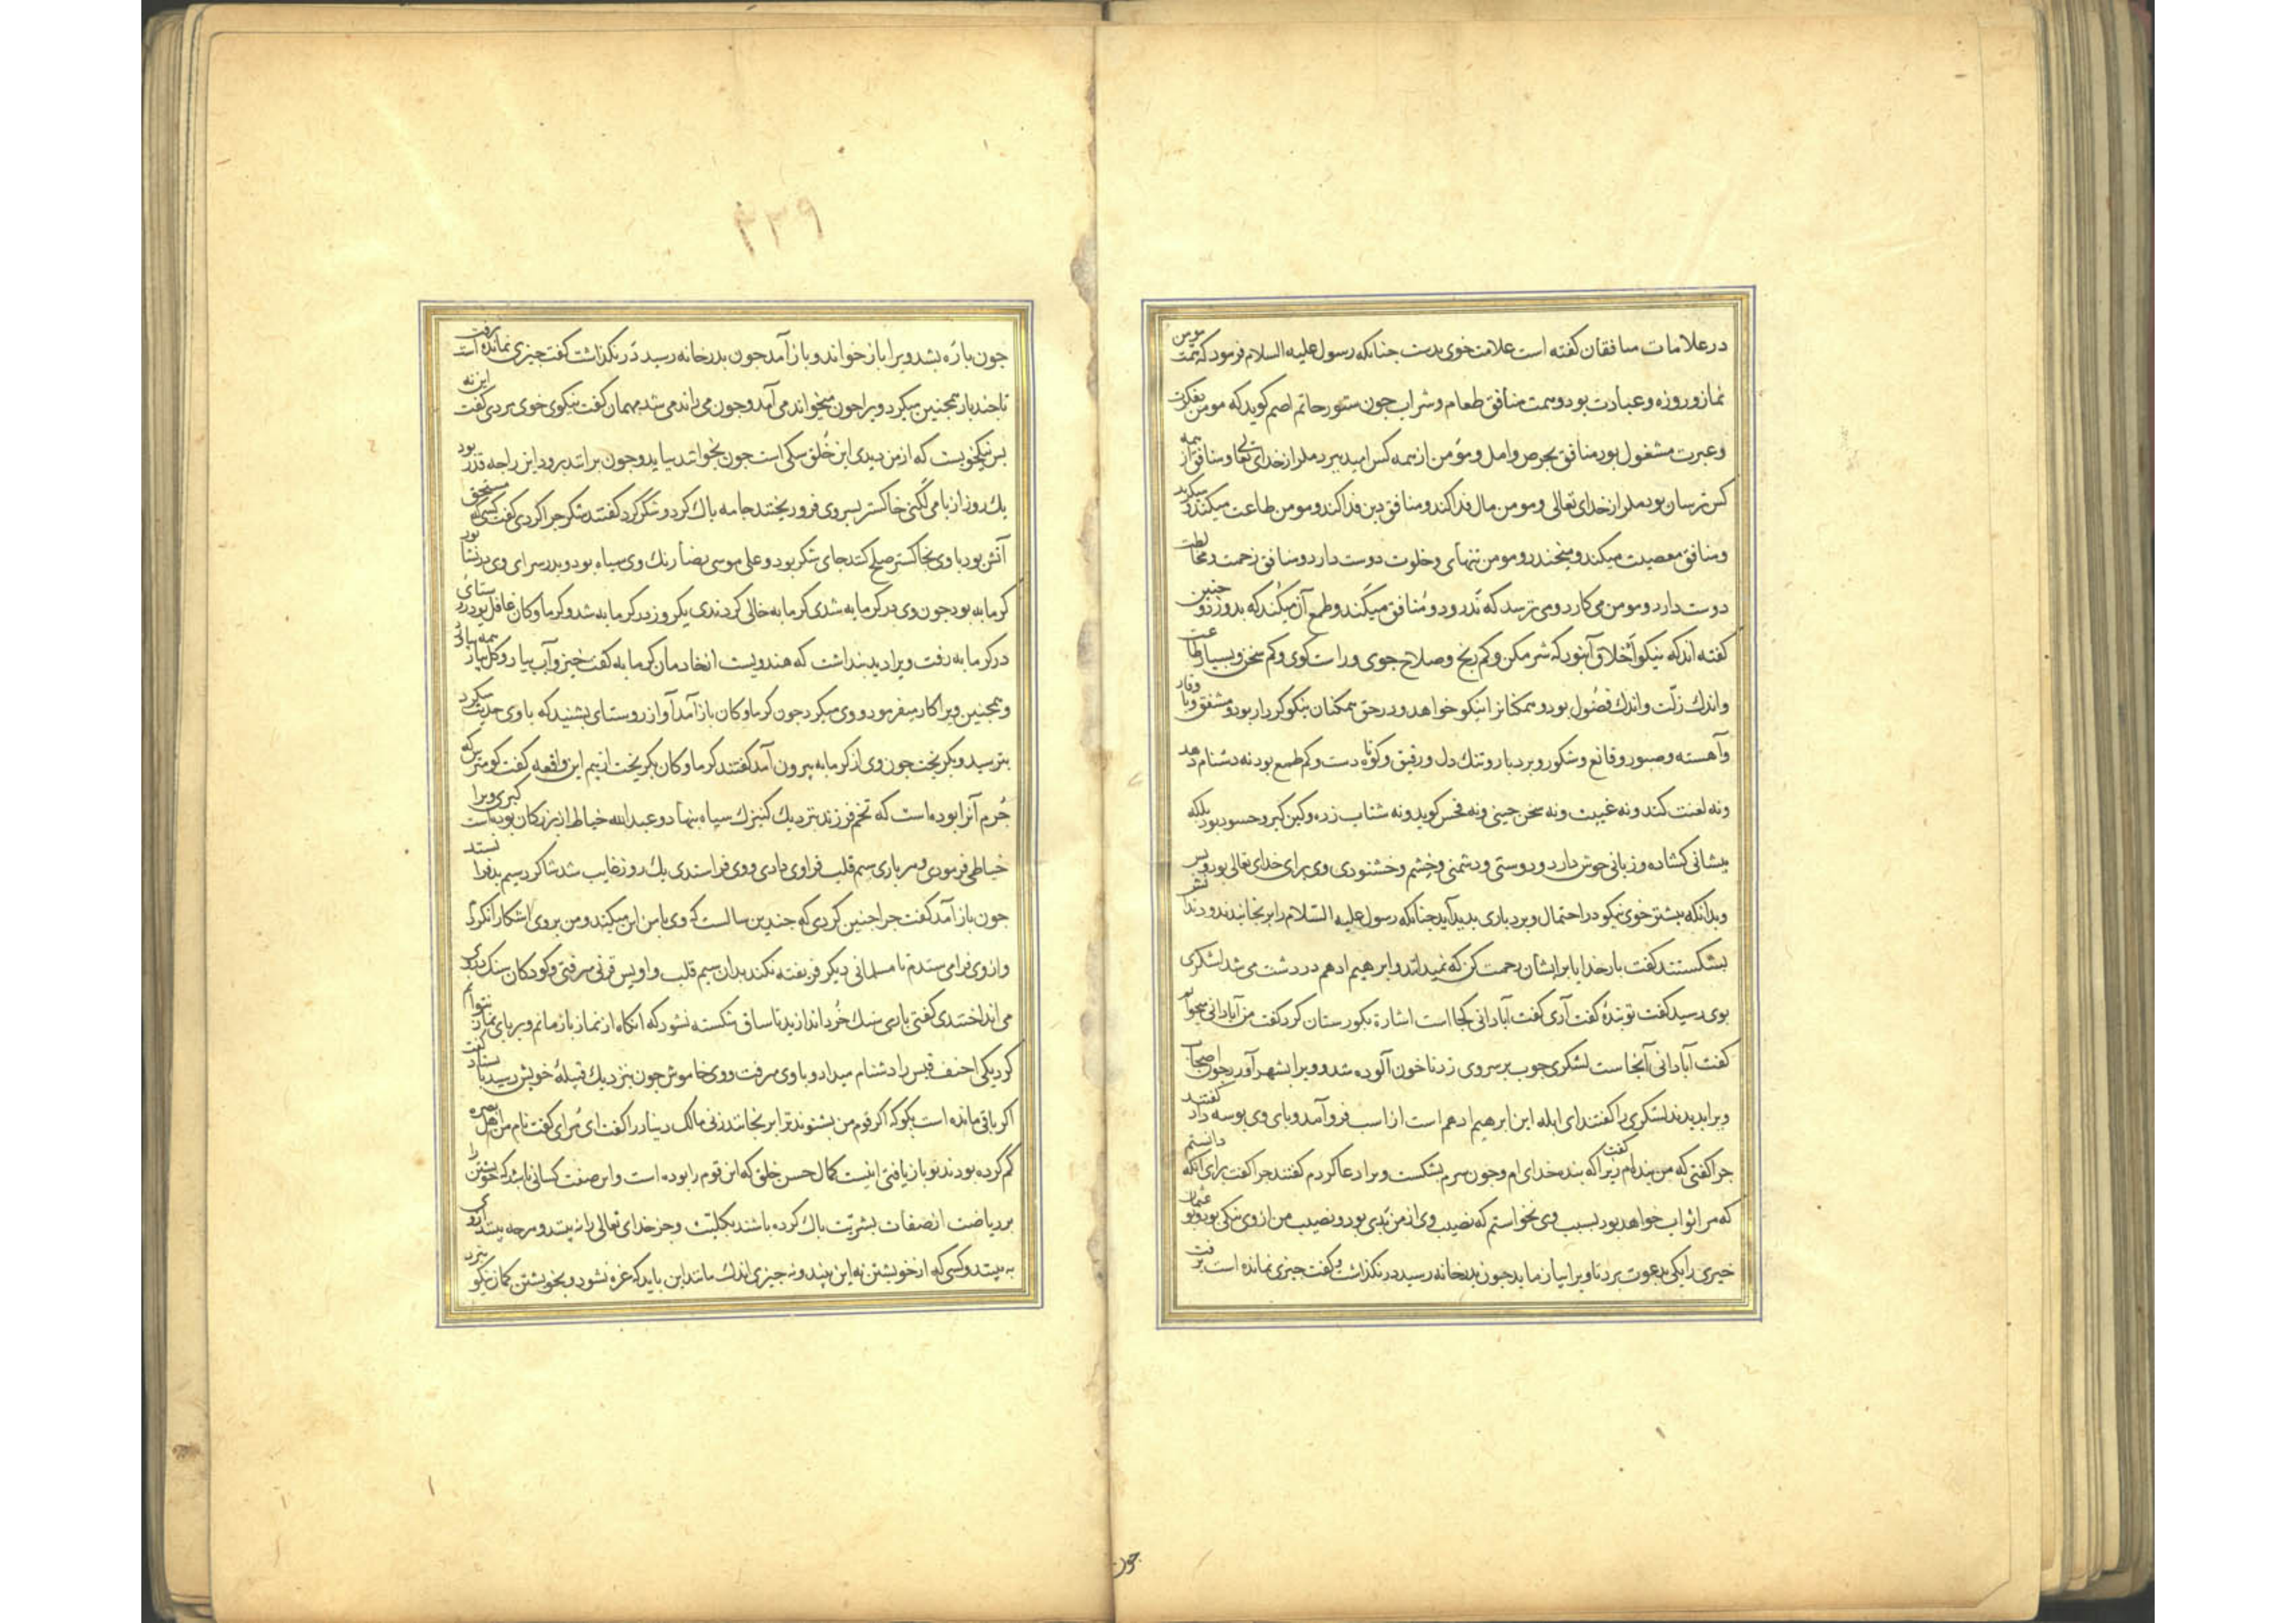 در علامات منافقان گفته است علامت خوی بدست جنانکه رسول علیه السلام فرمود که همت مومن
نماز و روزه و عبادت بود و همت منافق طعام و شراب جون ستور حاتم اصم کوید که مومن بفکرت
و عبرت مشغول بود و منافق بحرص و امل و مومن از همه کس امید ببرد مکر از خدای تعالی و منافق از همه
کس ترسان بود مکر از خدای تعالی و مومن مال فدا کند و منافق دین فدا کند و مومن طاعت میکند و میکرید
و منافق معصیت میکند و میخندد و مومن تنهای و خلوت دوست دارد و منافق زحمت و مخالطت
دوست دارد و مومن می کارد و می ترسد که ندرود و منافق میکند و طمع آن میکند که بدرود و جنین
کفته اند که نیکو اخلاق آن بود که شرمکن و کم رنج و صلاح جوی و راست کوی و کم سخن و بسیار طاعت
و اندک زلت و اندک فضول بود و همکنانرا نیکو خواهد و در حق همکنان نیکو کردار بود و مشفق و با وقار
و آهسته و صبور و قانع و شکور و بردبار و تنک دل و رفیق و کوتاه دست و کم طمع بود نه دشنام دهد
و نه لعنت کند و نه غیبت و نه سخن جینی و نه فحش کوید و نه شتاب زده و کین کیر و حسود بود بلکه
پیشانی کشاده و زبانی خوش دارد و دوستی و دشمنی و خشم و خشنودی وی برای خدای تعالی بود و بس
و بدانکه بیشتر خوی نیکو در احتمال و بردباری بدید آید جنانکه رسول علیه السلام را برنجانیدند و دندانش
بشکستند کفت بار خدایا بر ایشان رحمت کن که نمیدانند و ابرهیم ادهم در دشت می شد لشکری
بوی رسید کفت تو بندهٔ کفت آری کفت آبادانی کجا است اشارة بکورستان کرد کفت من آبادانی میخواهم
کفت آبادانی آنجا ست لشکری جوب بر سر وی زد تا خون آلوده شد و ویرا بشهر آورد جون اصحاب
ویرا بدیدند لشکری را کفتند ای ابله این ابرهیم ادهم است از اسب فرو آمد و پای وی بوسه داد کفتند
جرا کفتی که من بنده ام کفت زیرا که بنده خدای ام و جون سرم بشکست ویرا دعا کردم کفتند جرا کفت برای انکه دانستم
که مرا ثواب خواهد بود بسبب وی نخواستم که نصیب وی از من بدی بود و نصیب من از وی نیکی بود و بو عثمان
خیری را یکی بدعوت برد تا ویرا بیازماید جون بدر خانه رسید در نکذاشت و کفت جیزی نمانده است برفت
جون
۴۳۹
جون پارهٔ بشد ویرا باز خواند و باز آمد جون بدر خانه رسید در نکذاشت کفت جیزی نمانده است برفت
تا جند بار همجنین میکرد ویرا جون میخواند می آمد و جون می راند می شد مهمان کفت نیکوی خوی مردی کفت این نه
بس نیکخویست که از من دیدی این خلق سکی است جون بخوانند بیاید و جون برانند برود این را جه قدر بود
یک روز از بامی لکنی خاکستر بسر وی فرو ریختند جامه پاک کرد و شکر کرد کفتند شکر جرا کردی کفت کسی که مستحق
آتش بود با وی بخاکستر صلح کنند جای شکر بود و علی موسی رضا را رنک وی سیاه بود و بر در سرای وی در نشابور
کرمابه بود جون وی در کرمابه شدی کرمابه خالی کردندی یکروز در کرمابه شد و کرماوکان غافل بود روستائی
در کرمابه رفت ویرا دید بنداشت که هندویست از خادمان کرمابه کفت خیز و آب بیار و کل بیار همه بیاورد
و همجنین ویرا کار میفرمود و وی میکرد جون کرماوکان باز آمد آواز روستای بشنید که با وی حدیث میکرد
بترسید و بکریخت جون وی از کرمابه بیرون آمد کفتند کرماوکان بکریخت از بیم این واقعه کفت کو مترس که
جرم آنرا بوده است که تخم فرزند بنزدیک کنیزک سیاه بنهاد و عبد الله خیاط از بزرکان بوده است کبری ویرا
خیاطی فرمودی و هر باری سیم قلب فرا وی دادی و وی فراستدی یک روز غایب شد شاکرد سیم بد فرا نستد
جون باز آمد کفت جرا جنین کردی که جندین سالست که وی با من این میکند و من بر وی آشکارا نکردم
و از وی فرا می ستدم تا مسلمانی دیکر فریفته نکند بدان سیم قلب و اویس قرنی می رفتی و کودکان سنک در وی
می انداختندی کفتی باری سنک خرد اندازید تا ساق شکسته نشود که آنکاه از نماز باز مانم و بر پای نماز نتوانم
کرد یکی احنف قیس را دشنام میداد و با وی می رفت و وی خاموش جون بنزدیک قبیلهٔ خویش رسید باستاد کفت
اکر باقی مانده است بکو که اکر قوم من بشنوند ترا برنجانند زنی مالک دینار را کفت ای مرای کفت نام من اهل بصره
کم کرده بودند تو باز یافتی اینست کمال حسن خلق که این قوم را بوده است و این صفت کسانی باشد که خویشتن را
بریاضت از صفات بشریت پاک کرده باشند بکلیت و جز خدای تعالی را نه بینند و هر جه بینند از وی
به بینند و کسی که از خویشتن نه این بیند و نه جیزی اندک مانند این باید که غره نشود و بخویشتن کمان نیکو نبرد